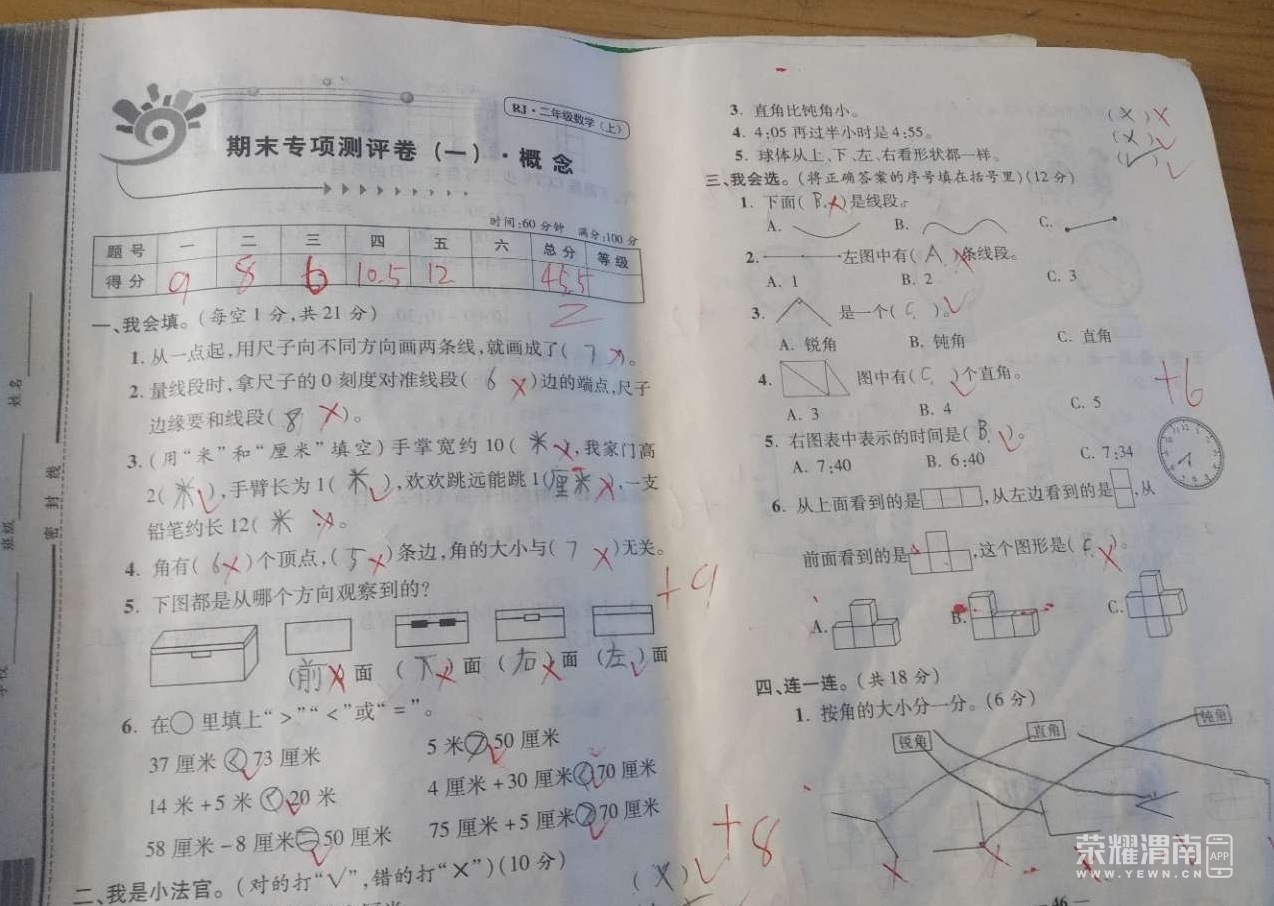 RJ·二年级数学(上)
期末专项测评卷(一)·概念
时间:60分钟 满分:100分
题号 一 二 三 四 五 六 总分 等级
得分 9 8 6 10.5 12 45.5
一、我会填。(每空1分,共21分)
1. 从一点起,用尺子向不同方向画两条线,就画成了( 7 )。
2. 量线段时,拿尺子的0刻度对准线段( 6 )边的端点,尺子
边缘要和线段( 8 )。
3. (用“米”和“厘米”填空)手掌宽约10( 米 ),我家门高
2( 米 ),手臂长为1( 米 ),欢欢跳远能跳1(厘米),一支
铅笔约长12( 米 )。
4. 角有( 6 )个顶点,( 5 )条边,角的大小与( 7 )无关。
5. 下图都是从哪个方向观察到的?
(前)面 (下)面 (右)面 (左)面
6. 在○里填上“>”“<”或“=”。
37厘米<73厘米 5米>50厘米
14米+5米<20米 4厘米+30厘米<70厘米
58厘米-8厘米=50厘米 75厘米+5厘米>70厘米
+9
二、我是小法官。(对的打“√”,错的打“×”)(10分)
(×)
+8
3. 直角比钝角小。 (×)
4. 4:05再过半小时是4:55。 (×)
5. 球体从上、下、左、右看形状都一样。 (√)
三、我会选。(将正确答案的序号填在括号里)(12分)
1. 下面( B )是线段。
A. B. C.
2. 左图中有( A )条线段。
A. 1 B. 2 C. 3
3. 是一个( C )。
A. 锐角 B. 钝角 C. 直角
4. 图中有( C )个直角。
A. 3 B. 4 C. 5
+6
5. 右图表中表示的时间是( B )。
A. 7:40 B. 6:40 C. 7:34
6. 从上面看到的是,从左边看到的是,从
前面看到的是,这个图形是( C )。
A. B. C.
四、连一连。(共18分)
1. 按角的大小分一分。(6分)
锐角 直角 钝角
— 46 —
密封线
姓名
班级
学校
荣耀渭南 APP
WWW.YEWN.CN